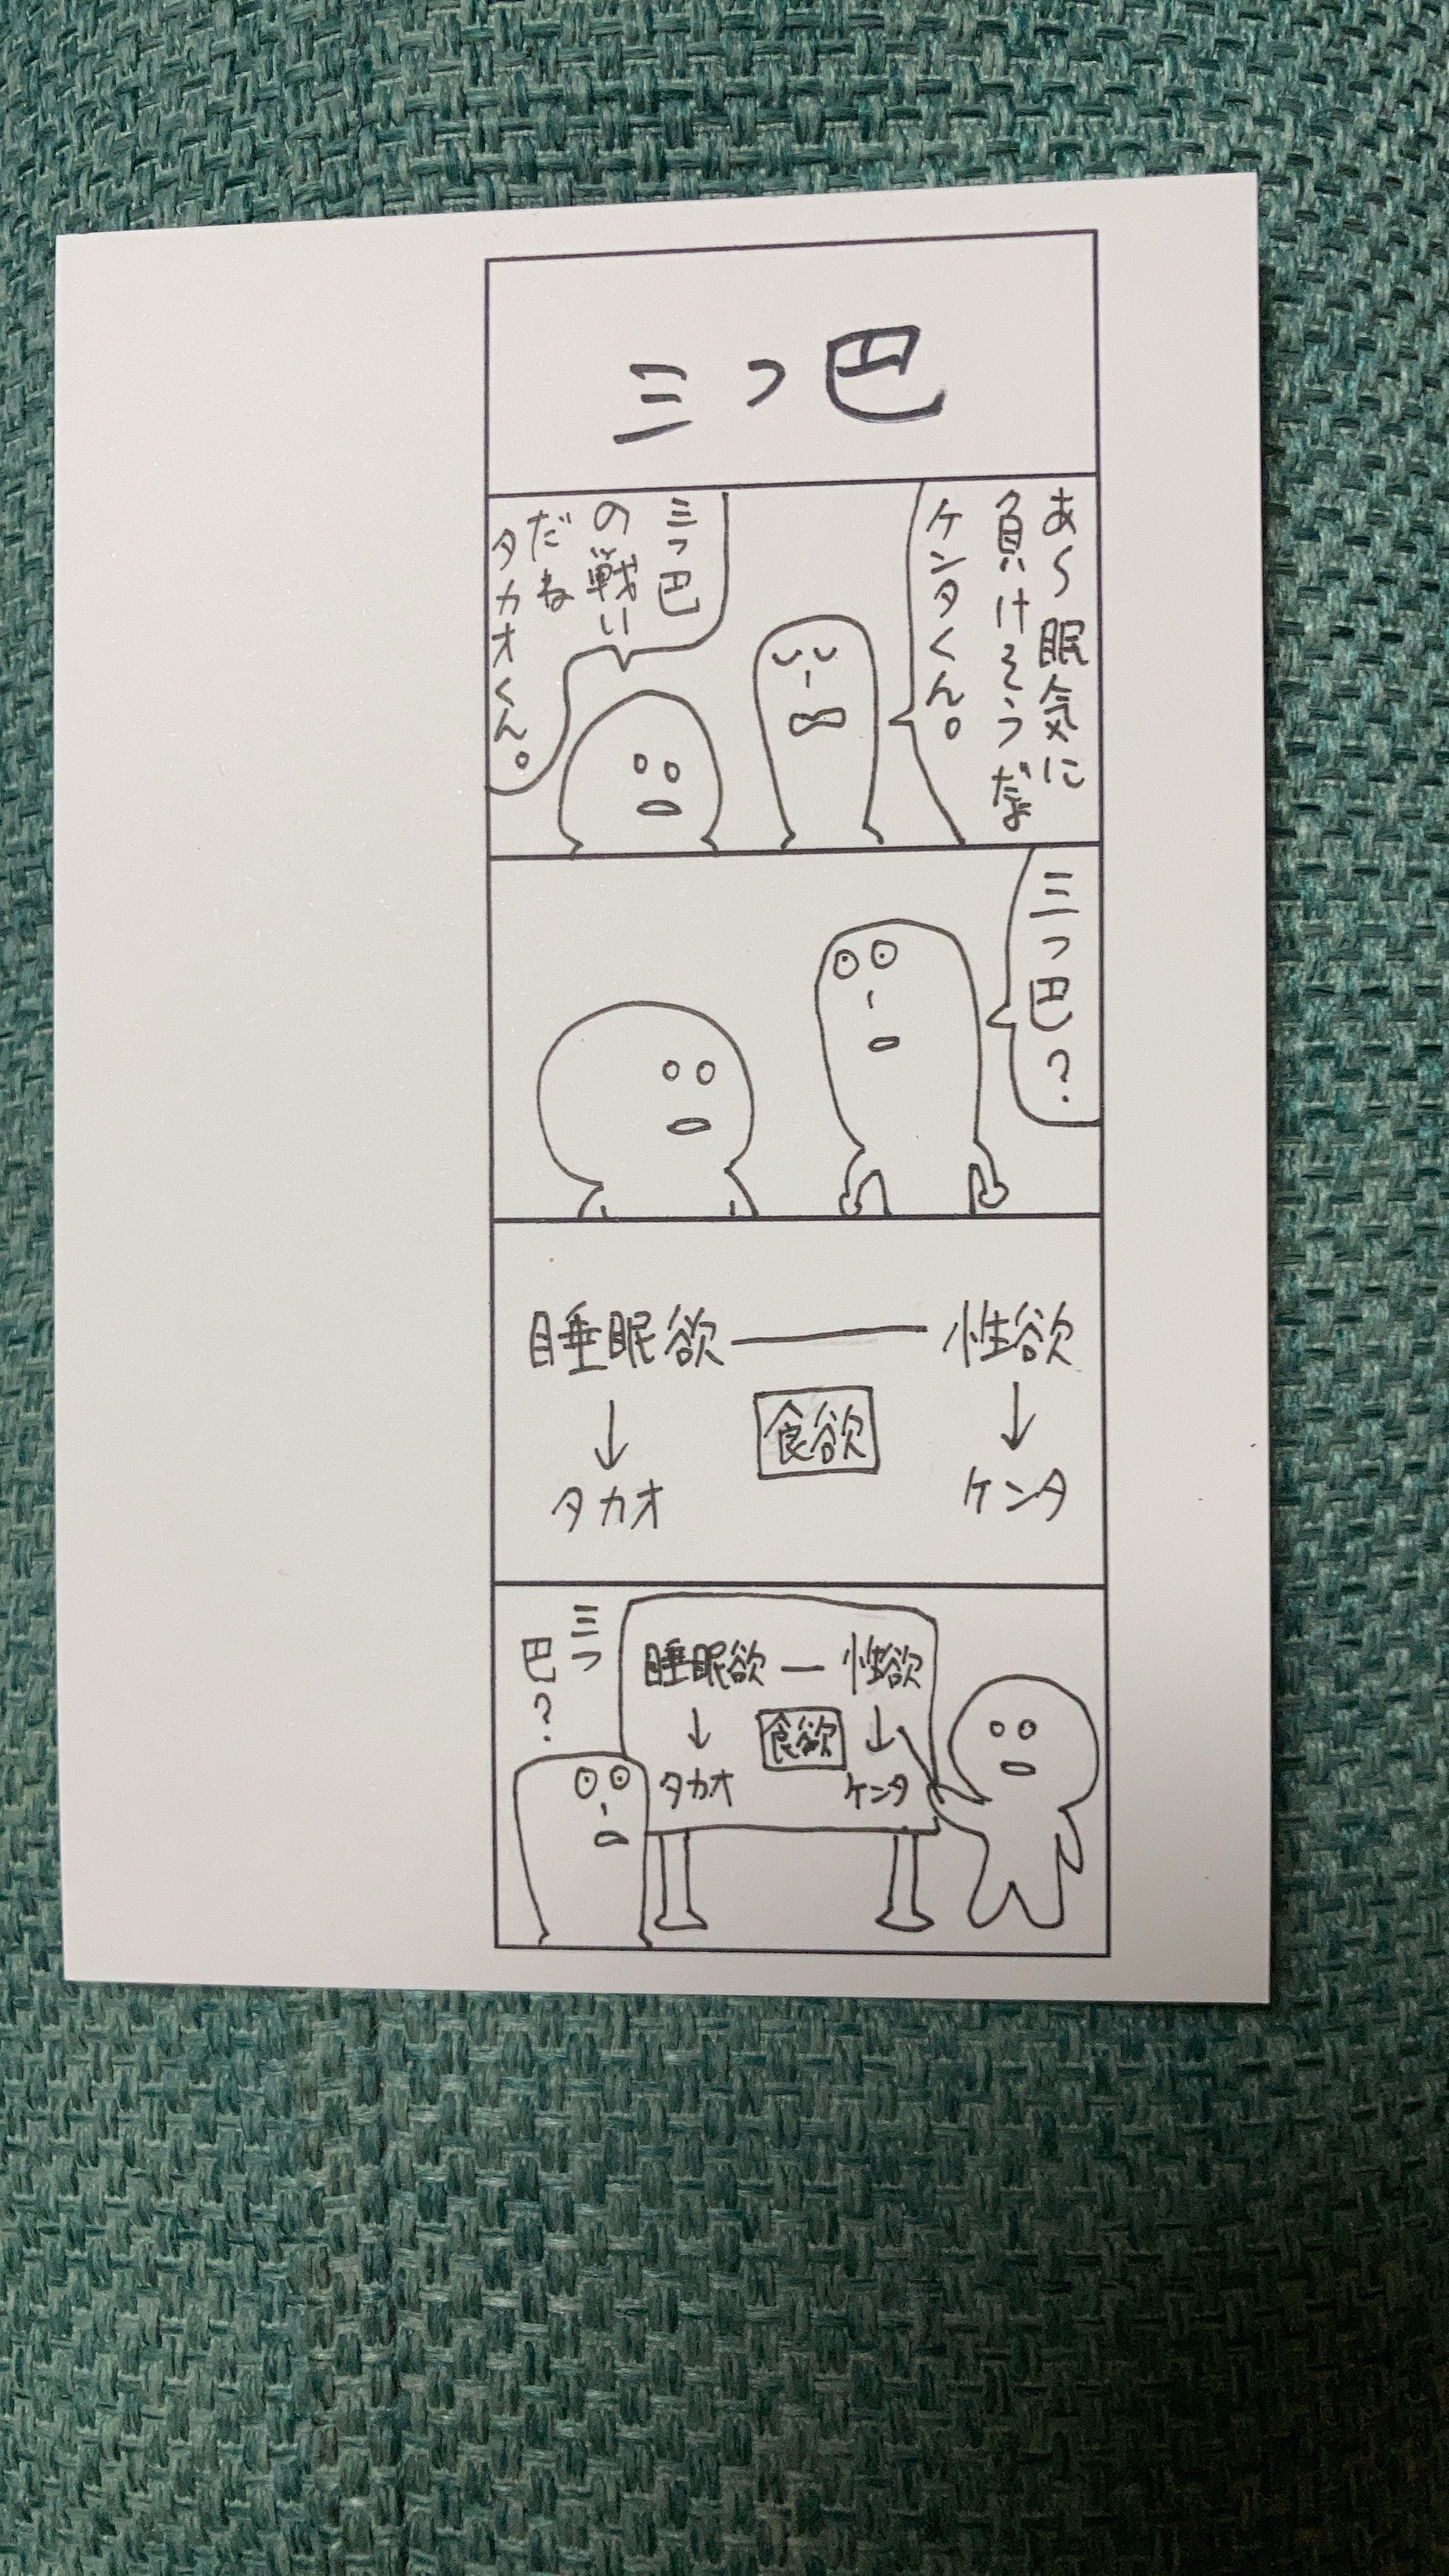 三つ巴
あ〜眠気に
負けそうだよ
ケンタくん。
三つ巴
の戦い
だね
タカオくん。
三つ巴？
睡眠欲 — 性欲
食欲
↓ ↓
タカオ ケンタ
睡眠欲 — 性欲
食欲
↓ ↓
タカオ ケンタ
三つ
巴？